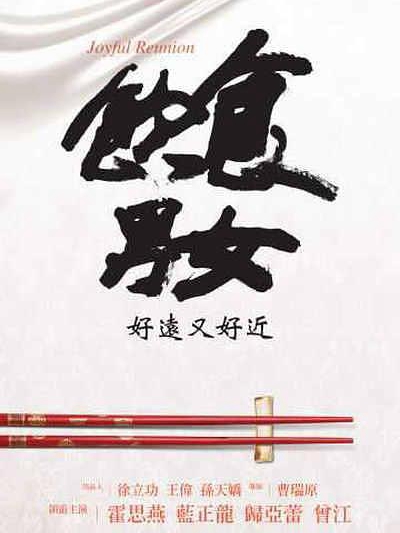 Joyful Reunion
飲食
男女
好遠又好近
出品人 徐立功 王偉 孫天嬌 導演 曹瑞原
領銜主演 霍思燕 藍正龍 歸亞蕾 曾江